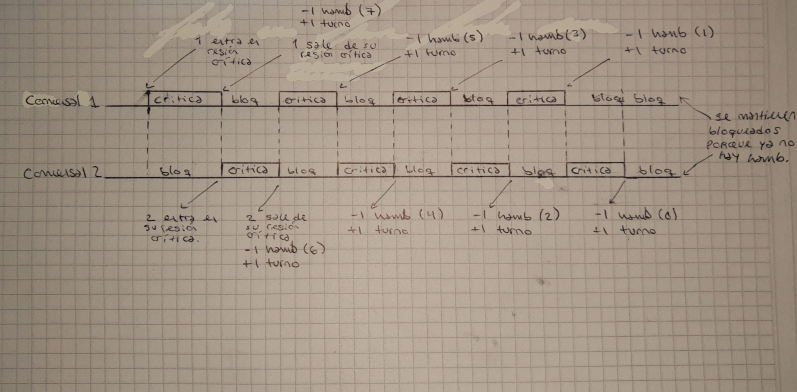 -1 hamb (7)
+1 turno
1 entra en
resión
crítica
1 sale de su
resión crítica
-1 hamb (5)
+1 turno
-1 hamb (3)
+1 turno
-1 hamb (1)
+1 turno
Comensal 1
crítica bloq crítica bloq crítica bloq crítica bloq bloq
se mantienen
bloqueados
porque ya no
hay hamb.
Comensal 2
bloq crítica bloq crítica bloq crítica bloq crítica bloq
2 entra en
su resión
crítica.
2 sale de
su resión
crítica
-1 hamb (6)
+1 turno
-1 hamb (4)
+1 turno
-1 hamb (2)
+1 turno
-1 hamb (0)
+1 turno